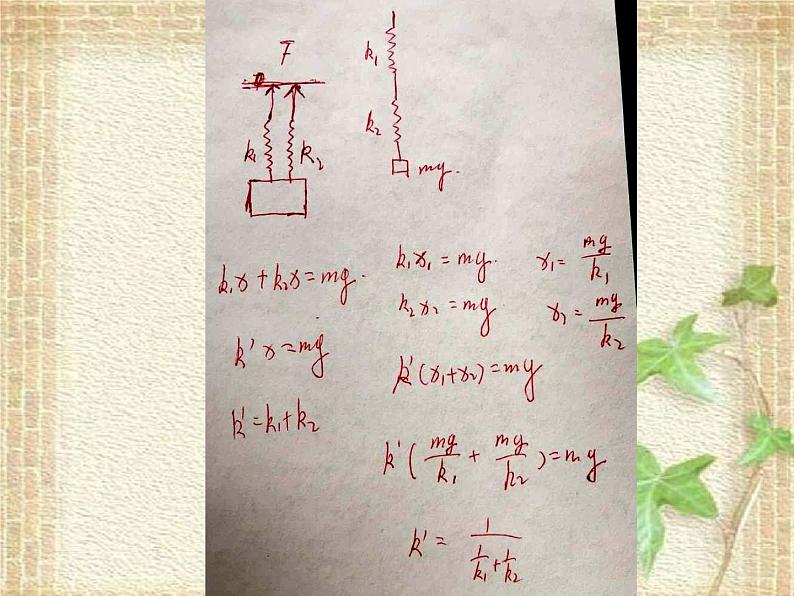 F
k₁ k₂
k₁x + k₂x = mg.
k'x = mg
k' = k₁ + k₂
k₁
k₂
mg.
k₁x₁ = mg. x₁ = mg/k₁
k₂x₂ = mg. x₂ = mg/k₂
k'(x₁+x₂) = mg
k'(mg/k₁ + mg/k₂) = mg
k' = 1/(1/k₁ + 1/k₂)